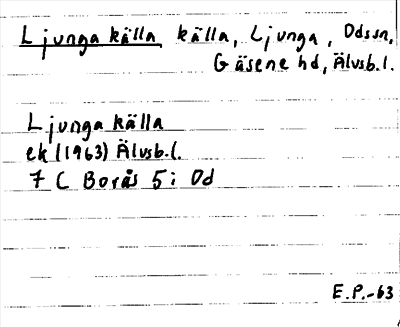 Ljunga källa källa, Ljunga, Odssn,
Gäsene hd, Älvsb.l.
Ljunga källa
ek (1963) Älvsb.l.
7 C Borås 5i Od
E.P.-63